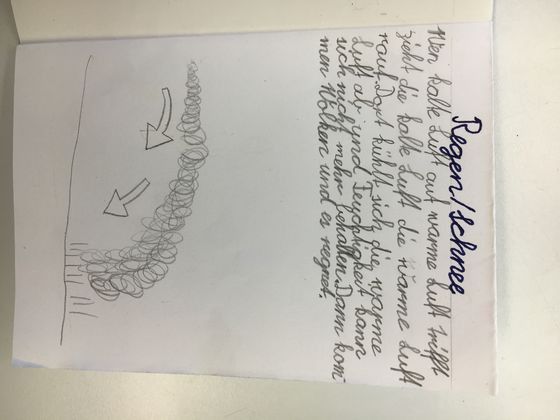 Regen/Schnee
Wen kalte Luft auf warme Luft trifft
zieht die kalte Luft die warme Luft
rauf. Dort kühlt sich die warme
Luft ab und Feuchtigkeit kann
sich nicht mehr behalten. Dann kom
men Wolken und es regnet.